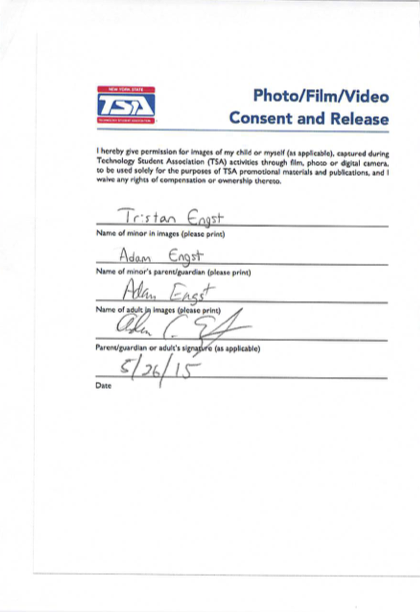 NEW YORK STATE
TSA
TECHNOLOGY STUDENT ASSOCIATION
Photo/Film/Video
Consent and Release
I hereby give permission for images of my child or myself (as applicable), captured during
Technology Student Association (TSA) activities through film, photo or digital camera,
to be used solely for the purposes of TSA promotional materials and publications, and I
waive any rights of compensation or ownership thereto.
Tristan Engst
Name of minor in images (please print)
Adam Engst
Name of minor's parent/guardian (please print)
Adam Engst
Name of adult in images (please print)
Parent/guardian or adult's signature (as applicable)
5/26/15
Date